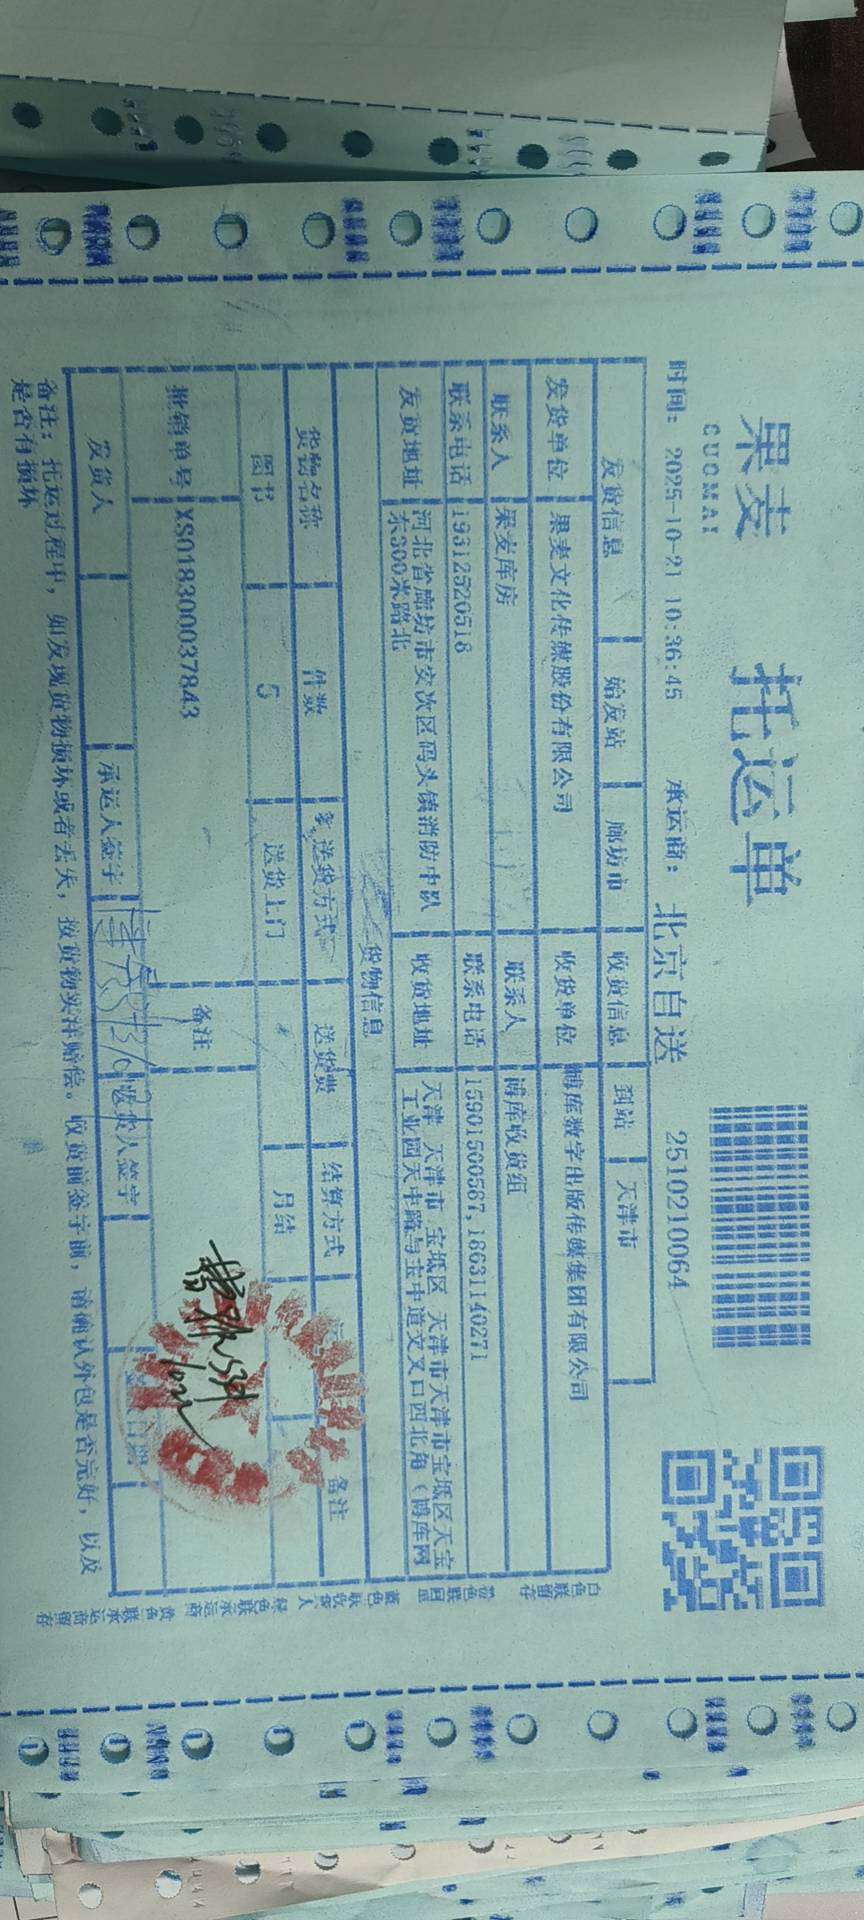 果麦
GUOMAI
托运单
时间: 2025-10-21 10:36:45 承运商: 北京自送 2510210064
发货信息 始发站 廊坊市 收货信息 到站 天津市
发货单位 果麦文化传媒股份有限公司 收货单位 博库数字出版传媒集团有限公司
联系人 果麦库房 联系人 博库收货组
联系电话 19312520518 联系电话 15901500587,18631140271
发货地址 河北省廊坊市安次区码头镇消防中队东300米路北 收货地址 天津 天津市 宝坻区 天津市天津市宝坻区天宝工业园天中路与宝中道交叉口西北角(博库网
货物信息
货物名称 件数 送货方式 送货费 结算方式 备注
图书 5 送货上门 月结
批销单号 XS018300037843 备注
发货人 承运人签字 收货人签字 日期
备注: 托运过程中, 如发现货物损坏或者丢失, 按货物实洋赔偿。收货前签字前, 请确认外包是否完好, 以及
是否有损坏
白色联留存 蓝色联收货人 绿色联承运商 黄色联承运商留存